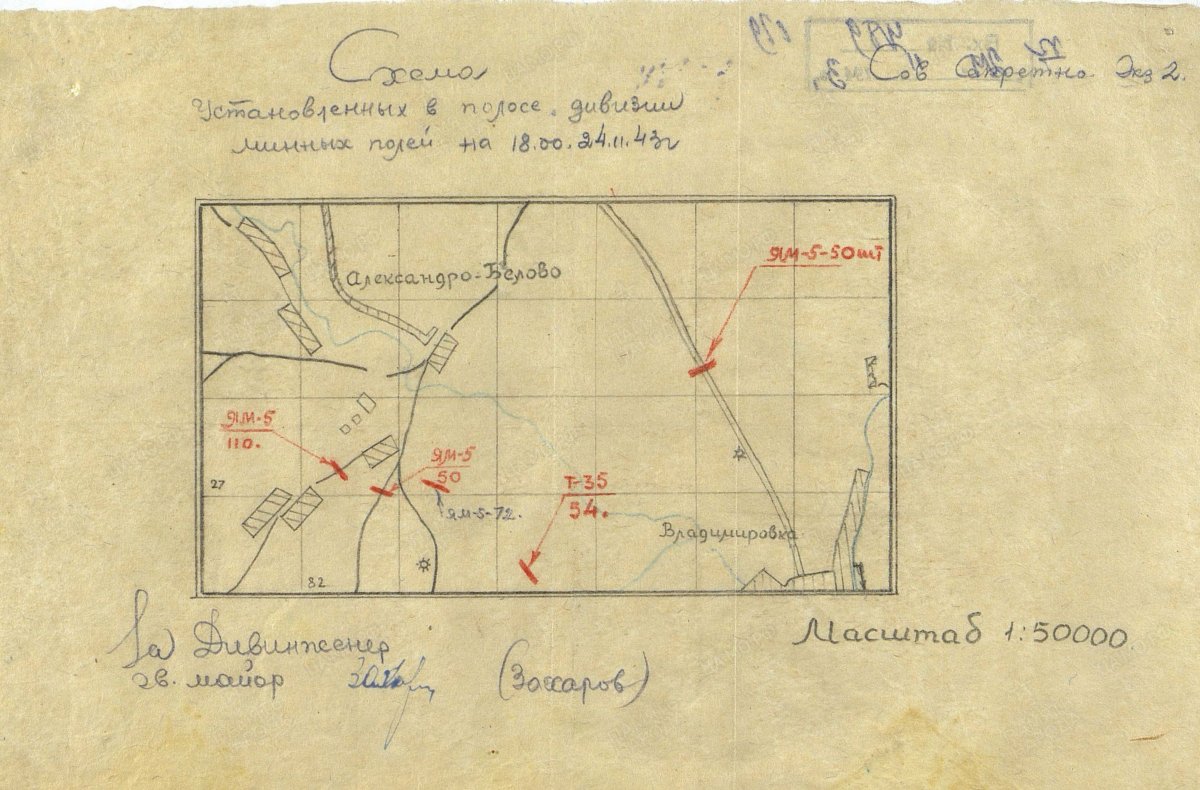 Сов Секретно Экз 2.
Схема
Установленных в полосе дивизии
минных полей на 18.00. 24.11.43г
ЯМ-5-50шт
Александро-Белово
ЯМ-5
110.
ЯМ-5
50
ЯМ-5-72.
Т-35
54.
27
Владимировка
82
Масштаб 1:50000.
За Дивинженер
гв. майор
(Захаров)